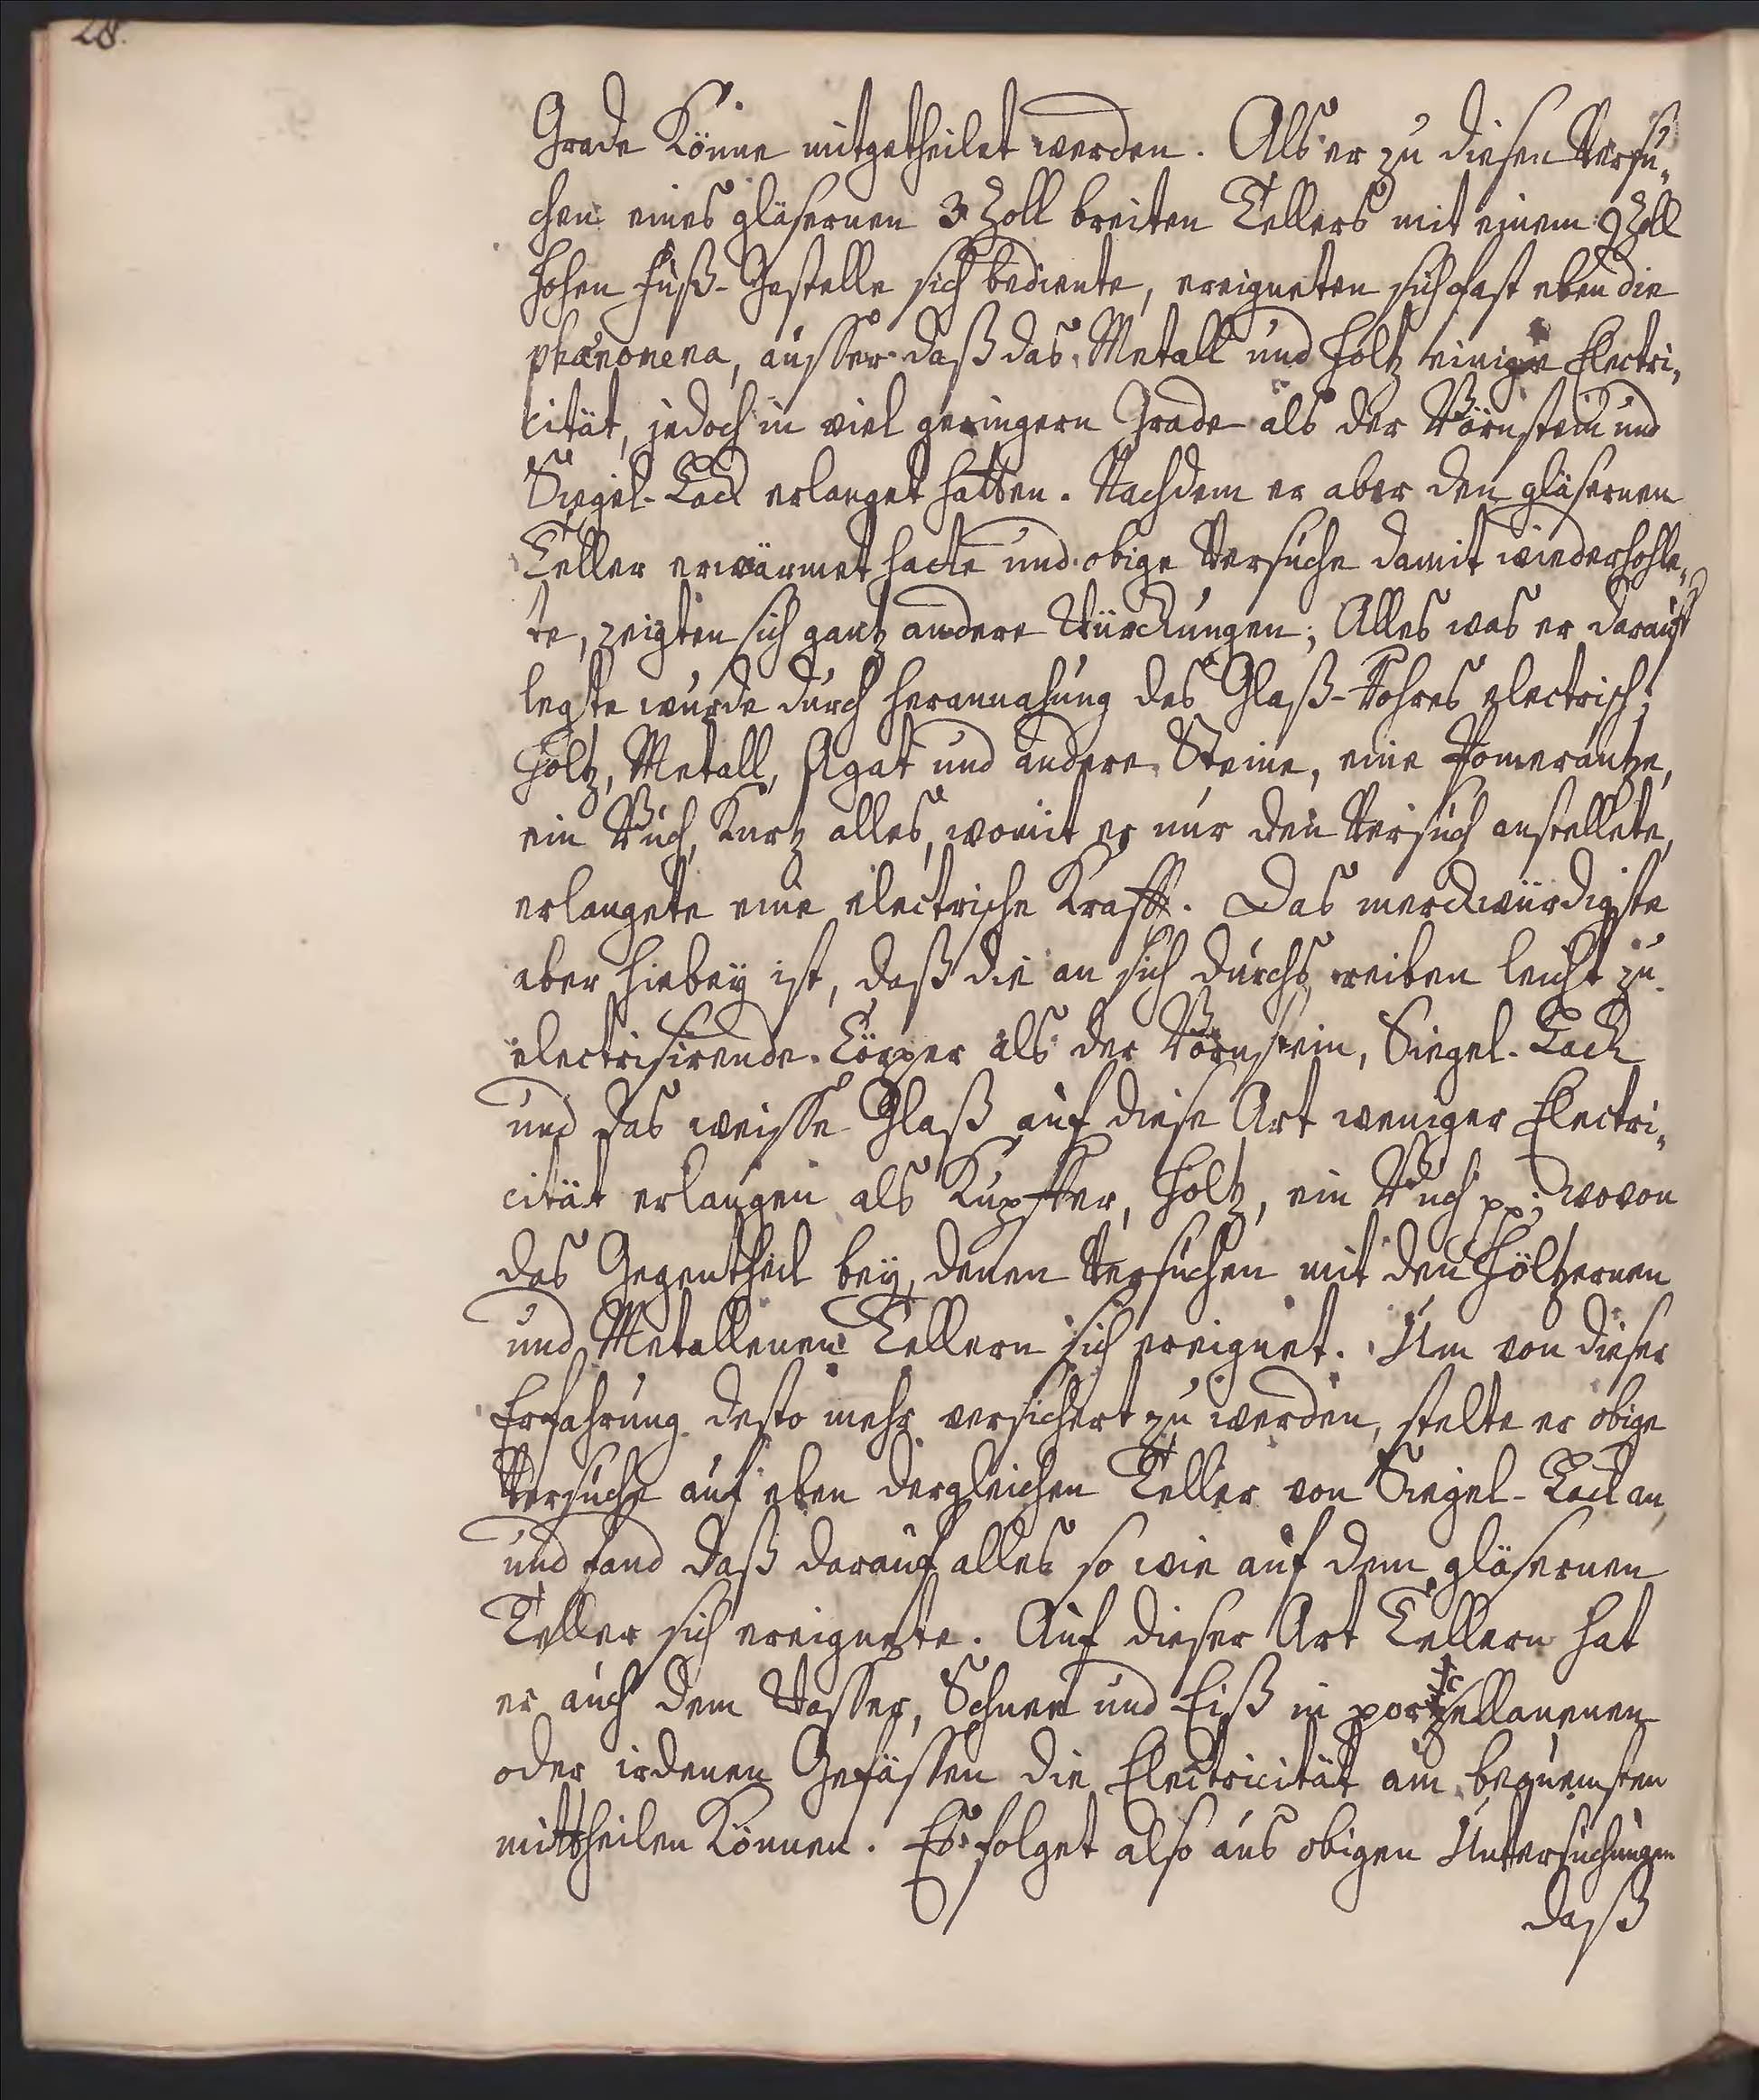 28.
Grade könne mitgetheilet werden. Als er zu diesen Versu„
chen eines gläsernen 3 Zoll breiten Tellers mit einem 9 Zoll
hohen Fuß-Gestelle sich bediente, ereigneten sich fast eben die
phænomena, ausser daß das Metall und Holtz einige Electri„
cität, jedoch in viel geringern Grade als der Börnstein und
Siegel-Lack erlanget hatten. Nachdem er aber den gläsernen
Teller erwärmet hatte und obige Versuche damit wiederhohle„
te, zeigten sich gantz andere Würckungen; Alles was er darauf
legte wurde durch herannahung des Glaß-Rohres electrisch;
Holtz, Metall, Agat und andere Steine, eine Pomerantze,
ein Buch, Kurtz alles, womit er nur den Versuch anstellete,
erlangete eine electrische Krafft. Das merckwürdigste
aber hiebey ist, daß die an sich durchs reiben leicht zu
electrisirende Cörper als der Börnstein, Siegel-Lack
und das weisse Glaß auf diese Art weniger Electri„
cität erlangen als Kupffer, Holtz, ein Buch pp; wovon
das Gegentheil bey denen Versuchen mit den Höltzernen
und Metallenen Tellern sich ereignet. Um von dieser
Erfahrung desto mehr versichert zu werden, stelte er obige
Versuche auf eben dergleichen Teller von Siegel-Lack an,
und fand daß darauf alles so wie auf dem gläsernen
Teller sich ereignete. Auf dieser Art Tellern hat
er auch dem Wasser, Schnee und Eiß in portzellanenen
oder irdenen Gefässen die Electricität am bequemsten
mittheilen können. Es folget also aus obigen Untersuchungen
daß